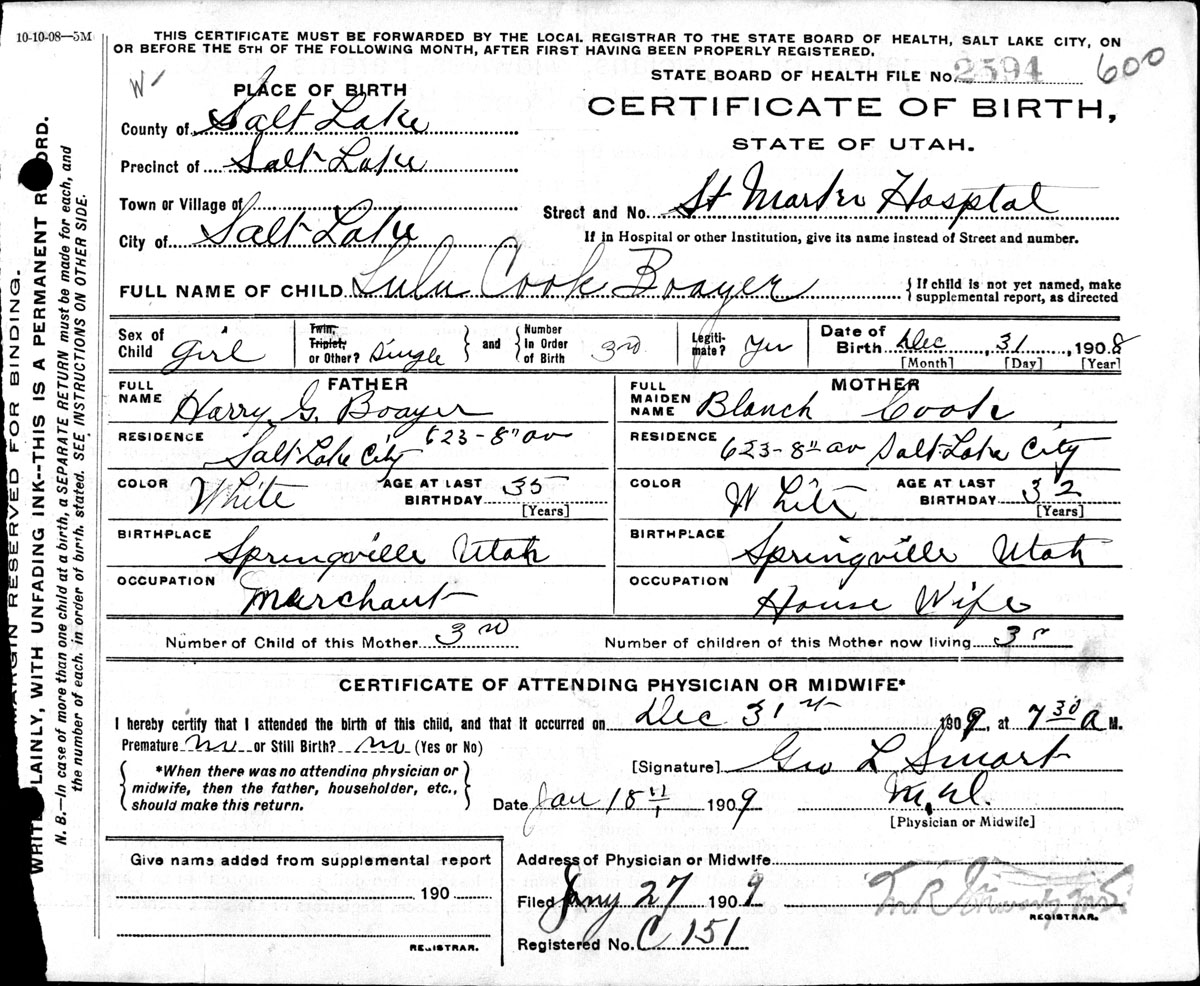 10-10-08—5M
THIS CERTIFICATE MUST BE FORWARDED BY THE LOCAL REGISTRAR TO THE STATE BOARD OF HEALTH, SALT LAKE CITY, ON
OR BEFORE THE 5TH OF THE FOLLOWING MONTH, AFTER FIRST HAVING BEEN PROPERLY REGISTERED.
STATE BOARD OF HEALTH FILE No. 2594 600
W
PLACE OF BIRTH
County of Salt Lake
Precinct of Salt Lake
Town or Village of
City of Salt Lake
CERTIFICATE OF BIRTH,
STATE OF UTAH.
Street and No. St Marks Hosptal
If in Hospital or other Institution, give its name instead of Street and number.
FULL NAME OF CHILD Lulu Cook Boayer
If child is not yet named, make
supplemental report, as directed
Sex of Child girl
Twin, Triplet, or Other? Single and Number In Order of Birth 3rd
Legitimate? Yes
Date of Birth Dec, 31, 1908
[Month] [Day] [Year]
FATHER
FULL NAME Harry G. Boayer
RESIDENCE 623-8" av
Salt Lake City
COLOR White AGE AT LAST BIRTHDAY 35
[Years]
BIRTHPLACE Springville Utah
OCCUPATION Marchant
MOTHER
FULL MAIDEN NAME Blanch Cook
RESIDENCE 623-8" av Salt Lake City
COLOR White AGE AT LAST BIRTHDAY 32
[Years]
BIRTHPLACE Springville Utah
OCCUPATION House Wife
Number of Child of this Mother 3rd Number of children of this Mother now living 3
CERTIFICATE OF ATTENDING PHYSICIAN OR MIDWIFE*
I hereby certify that I attended the birth of this child, and that it occurred on Dec 31st 1909, at 7 30 a M.
Premature no or Still Birth? no (Yes or No)
*When there was no attending physician or
midwife, then the father, householder, etc.,
should make this return.
[Signature] Geo L Smart
Date Jan 18 1909 M.D.
[Physician or Midwife]
Give name added from supplemental report
190
REGISTRAR.
Address of Physician or Midwife
Filed Jany 27 1909
REGISTRAR.
Registered No. C 151
MARGIN RESERVED FOR BINDING.
WRITE PLAINLY, WITH UNFADING INK--THIS IS A PERMANENT RECORD.
N. B.—In case of more than one child at a birth, a SEPARATE RETURN must be made for each, and
the number of each, in order of birth, stated. SEE INSTRUCTIONS ON OTHER SIDE.